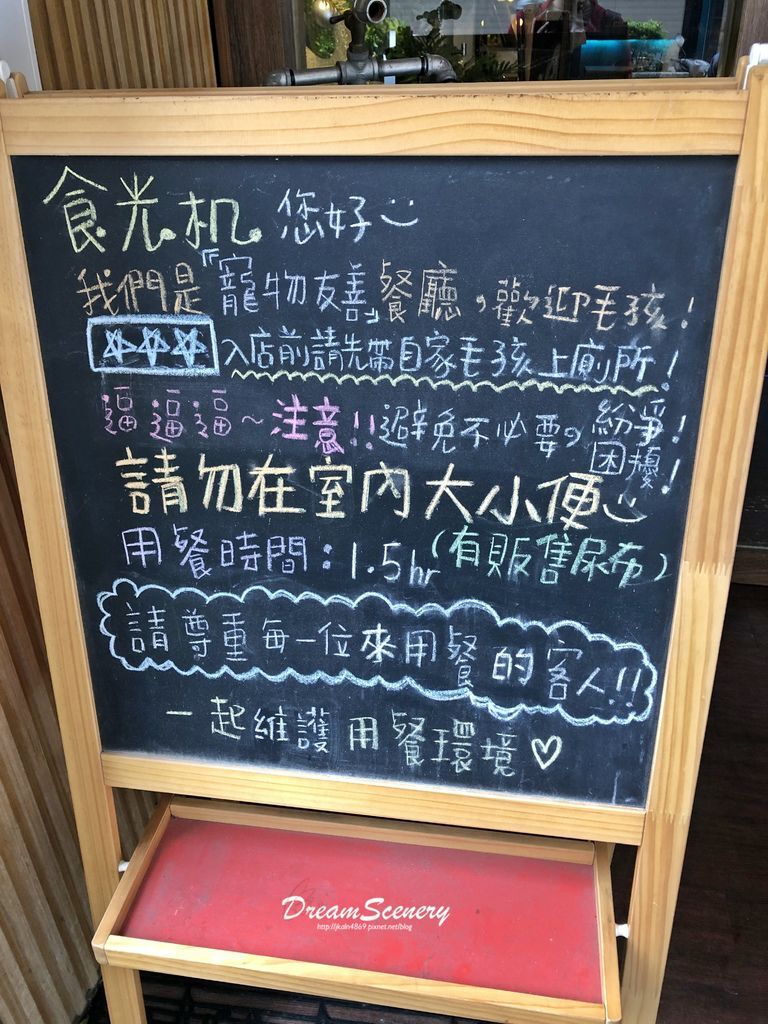 食光机 您好
我們是『寵物友善』餐廳，歡迎毛孩！
☆☆☆ 入店前請先帶自家毛孩上廁所！
逼逼逼~注意!!避免不必要的紛爭！
困擾！
請勿在室內大小便
用餐時間：1.5hr (有販售尿布)
請尊重每一位來用餐的客人!!
一起維護用餐環境♡
DreamScenery
http://jkaln4869.pixnet.net/blog